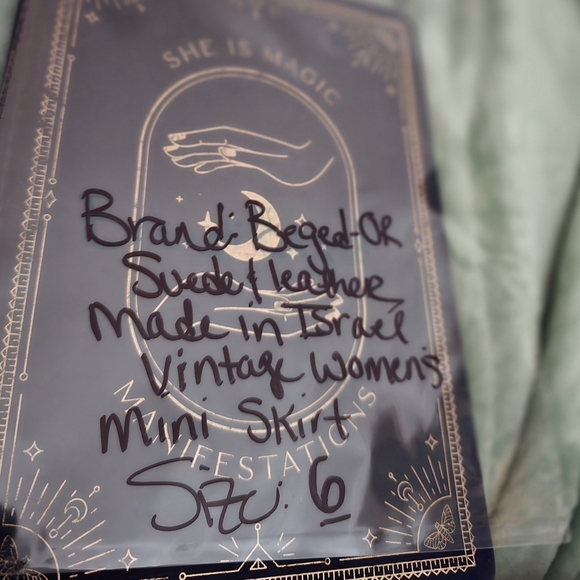 SHE IS MAGIC
Brand: Beged-OR
Suede & leather
Made in Israel
Vintage Women's
Mini Skirt
MANIFESTATIONS
Size: 6